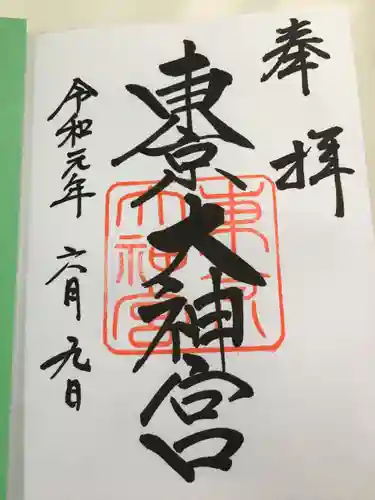 奉拝
東京大神宮
東京
大神宮
令和元年 六月九日